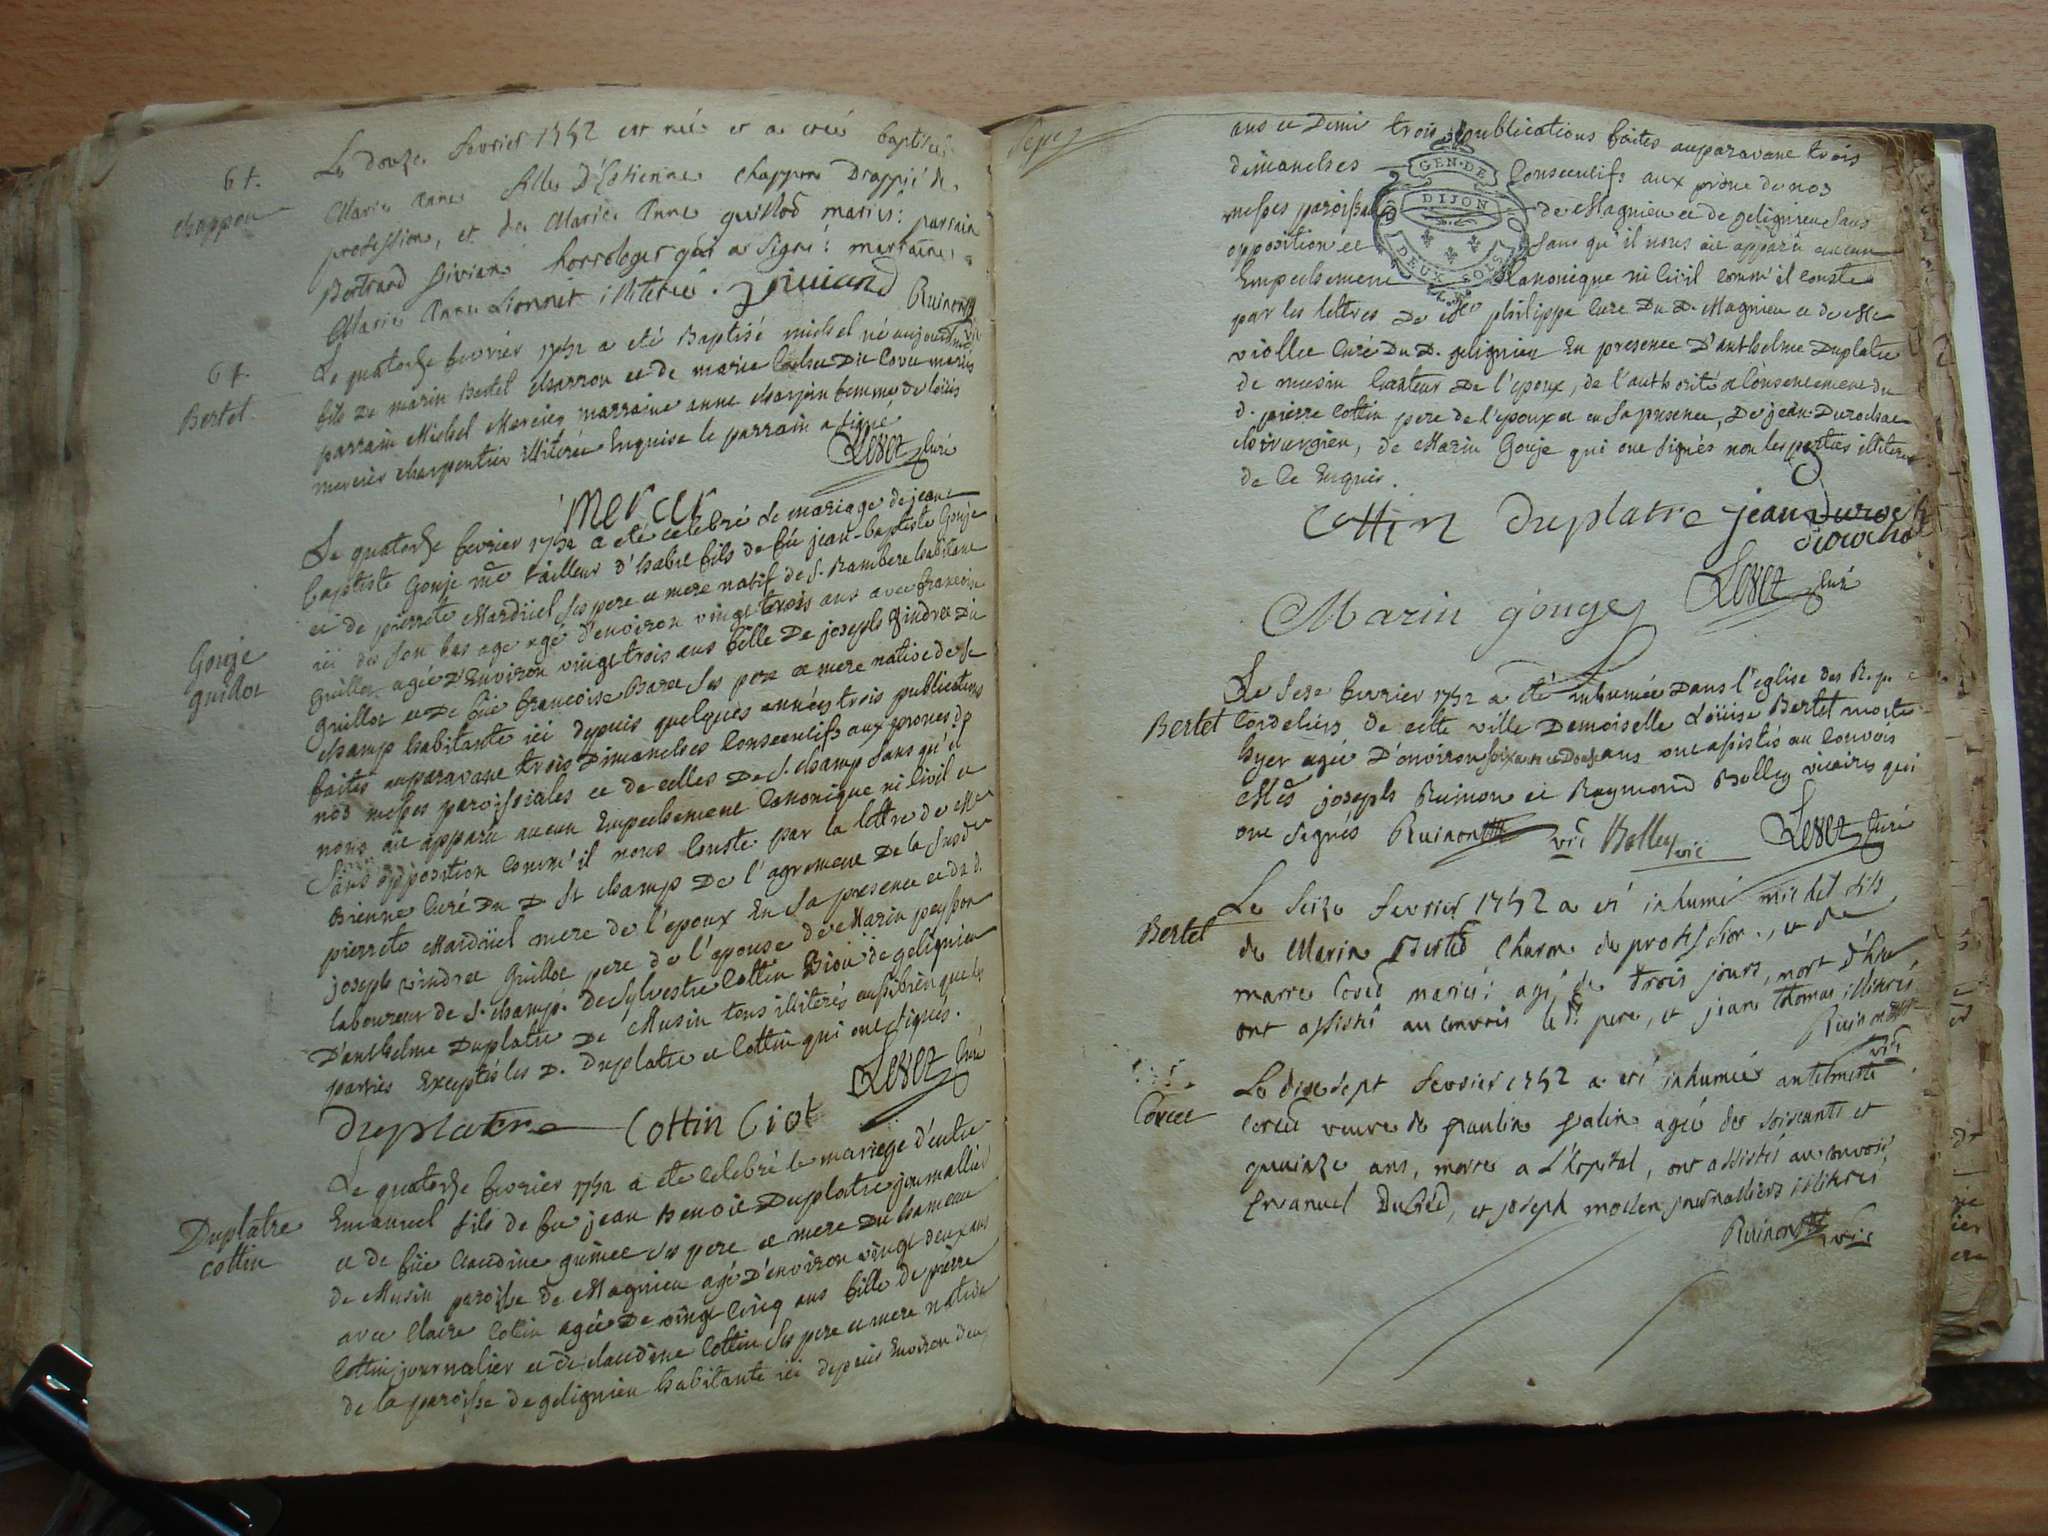 6 f.
chappon
Le douze fevrier 1752 est née et a etée baptisée
Marie Anne fille D'Estienne chappon Drappié de
profession, et de Marie Anne guillod mariés: parrain
Bertrand Liviand horrologer qui a signé: marraine
Marie Anne Lionnet illiterée. Liviand Ruinon
6 f.
Bertet
Le quatorze fevrier 1752 a eté Baptisé michel né aujourdhuy
fils de marin Bertet charron et de marie Coches Dit Covet mariés
parrain Michel Mercier marraine anne charpin femme de loüis
mercier charpentier illiterée Enquise le parrain a signé
Levet Curé
mercier
Gouje
guillot
Le quatorze fevrier 1752 a eté celebré le mariage de jean
baptiste Gouje me tailleur d'habit fils de feu jean-baptiste Gouje
et de pierrette Mardüel ses pere et mere natif de S. Rambert habitant
ici des son bas age agé d'environ vingt trois ans avec francoise
Guillot agée d'Environ vingt trois ans fille De joseph vindret Dit
Guillot et De füe francoise Baret ses pere et mere native de St
champ habitante ici depuis quelques années trois publications
faites auparavant trois Dimanches Consecutifs aux prones de
nos messes paroissiales et de celles De S. champ sans qu'il
nous ait apparu aucun Empechement Canonique ni Civil et
sans opposition Comm'il nous Conste par la lettre de Mre
Brienne Curé Du D. St champ De l'agrement De la susde
pierrette Mardüel mere de l'epoux En sa presence et du d.
joseph vindret Guillot pere de l'epouse de Marin peysson
laboureur de S. champ. de Sylvestre Cottin Biou de gelignieu
D'anthelme Duplatre De Musin tous illiterés aussibien que les
parties Exceptés les D. Duplatre et Cottin qui ont signés.
Levet Curé
Duplatre Cottin Ciot
Duplatre
cottin
Le quatorze fevrier 1752 a eté celebré le mariage d'entre
Emanuel fils de feu jean Benoit Duplatre journallier
et de füe Claudine guinet ses pere et mere Du hameau
de Musin paroisse de Magnieu agé D'environ vingt deux ans
avec Claire Cotin agée De vingt Cinq ans fille de pierre
Cottin journalier et de claudine Cottin ses pere et mere native
de la paroisse de gelignieu habitante ici depuis Environ deux
ans et Demi trois publications faites auparavant trois
dimanches Consecutifs aux prône de nos
messes paroissales de Magnieu et de gelignieu sans
opposition et sans qu'il nous ait apparu aucun
Empechement Canonique ni Civil comm'il conste
par les lettres De Mre philippe Curé Du D. Magnieu et de Mre
viollet Curé Du D. gelignieu En presence D'anthelme Duplatre
de musin Curateur De l'epoux, de l'authorité et Consentement du
d. pierre Cottin pere de l'epouse et en sa presence, De jean Durochat
chirurgien, de Marin Gouje qui ont signés non les parties illiterées
de ce Enquis.
GEN. DE
DIJON
DEUX SOLS
Cottin Duplatre jean Duroch
durochat
Levet Curé
Marin gouge
Bertet
Le seze fevrier 1752 a eté inhumée Dans l'eglise des R. p.
Cordeliers de cette ville Demoiselle Loüise Bertet morte
hyer agée D'environ soixante et Douze ans ont assistés au Convois
Mes joseph Ruinon et Raymond Bolley vicaires qui
ont signés Ruinon vic Bolley vic Levet Curé
Bertet
Le seize fevrier 1752 a eté inhumé michel fils
de Marin Berted Charon de profession, et de
marie Coved mariés: agé de trois jours, mort d'hier
ont assisté au convois le dt pere, et jean thomas illiterés
Ruinon
vic
Corcet
Le dix sept fevrier 1752 a eté inhumée antelmette
Corcet veuve de paulin palin agée de soissante et
quainze ans, morte a l'hopital, ont assistés au convois
Emanuel Ducred, et joseph mollen journalliers illiterés
Ruinon vic